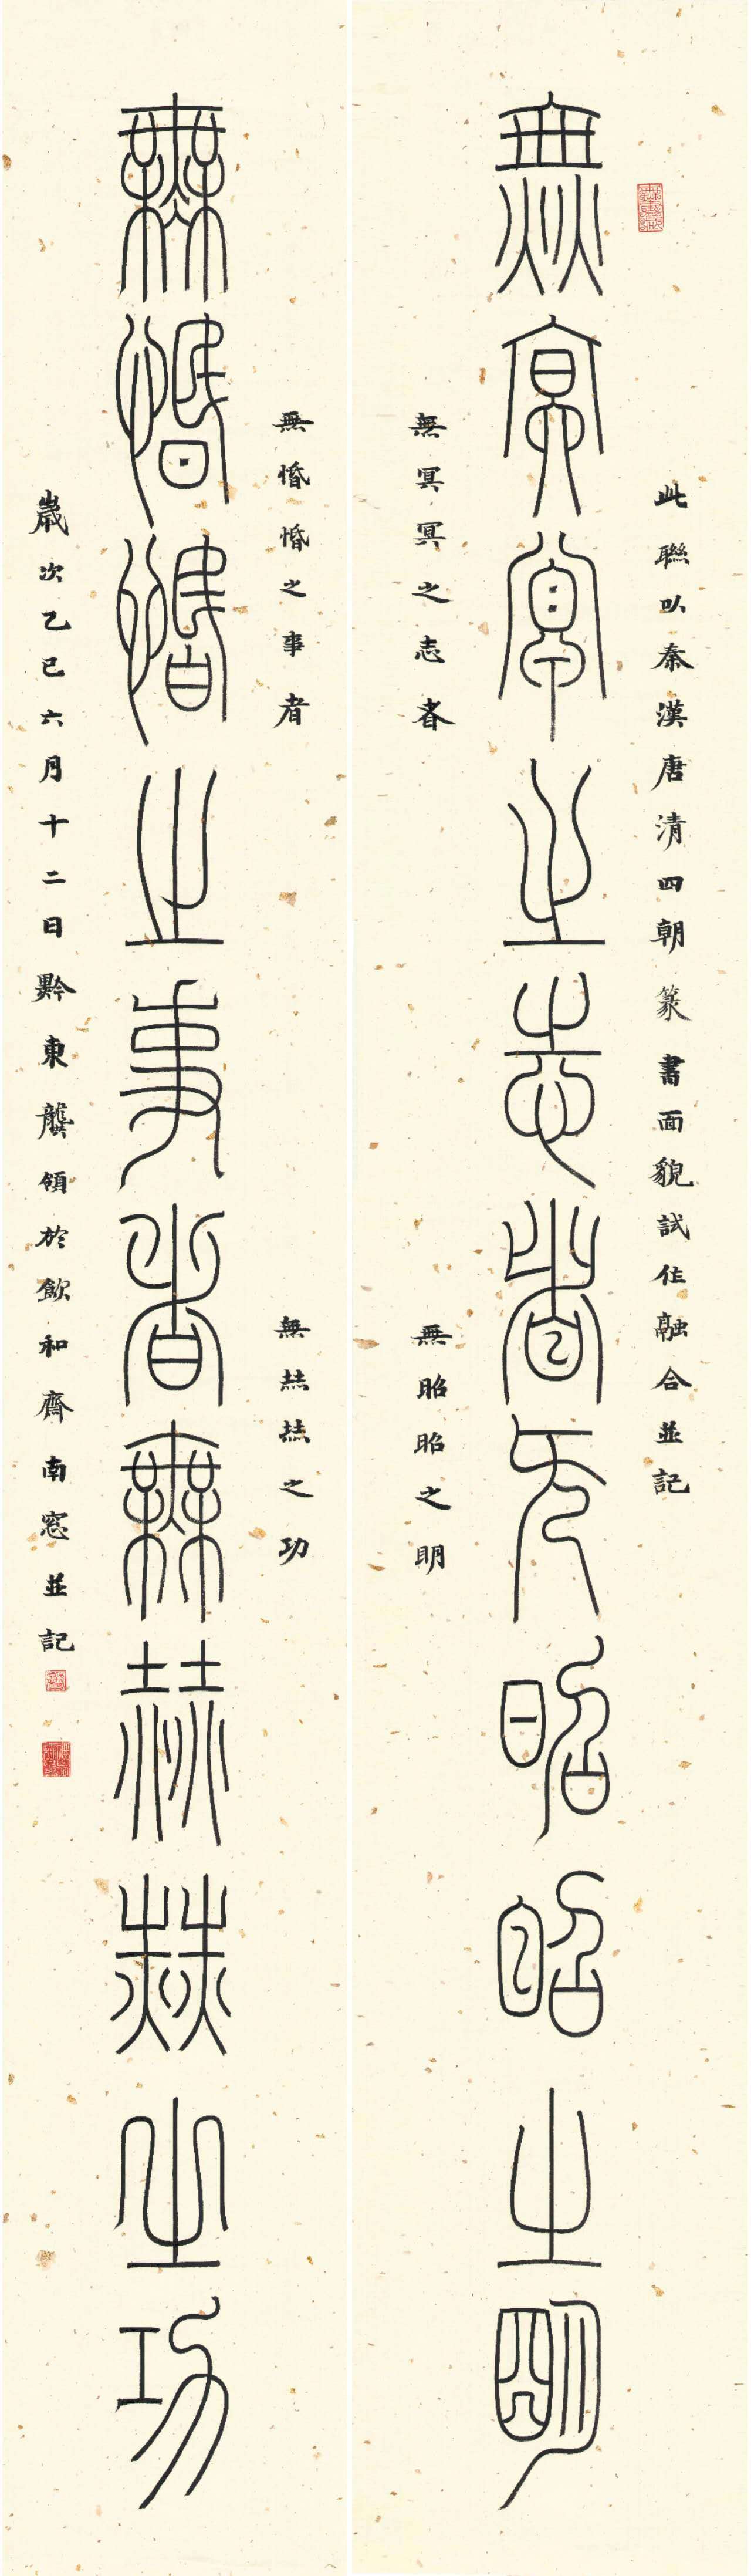 此聯以秦漢唐清四朝篆書面貌試作融合並記
無冥冥之志者無昭昭之明
無冥冥之志者
無昭昭之明
無惛惛之事者
無赫赫之功
無惛惛之事者無赫赫之功
歲次乙巳六月十二日黔東龔領於飲和齋南窓並記